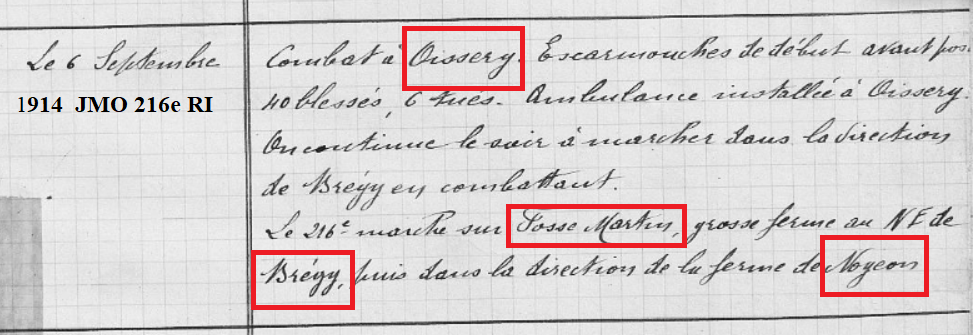 Le 6 Septembre
1914 JMO 216e RI
Combat à Oissery. Escarmouches de début avant pos
40 blessés, 6 tués. Ambulance installée à Oissery.
On continue le soir à marcher dans la direction
de Brégy en combattant.
Le 216e marche sur Fosse Martin, grosse ferme au NE de
Brégy, puis dans la direction de la ferme de Nogeon